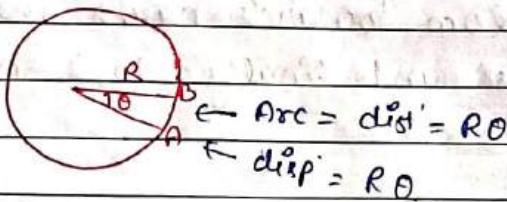 R
θ
B
← Arc = dist' = Rθ
A
← disp' = Rθ